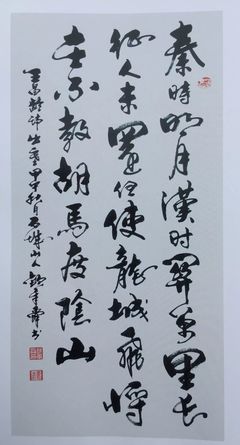 秦時明月漢时關万里長
征人未還但使龍城飛將
在不教胡馬度陰山
王昌齡詩出塞甲午秋月石城山人書